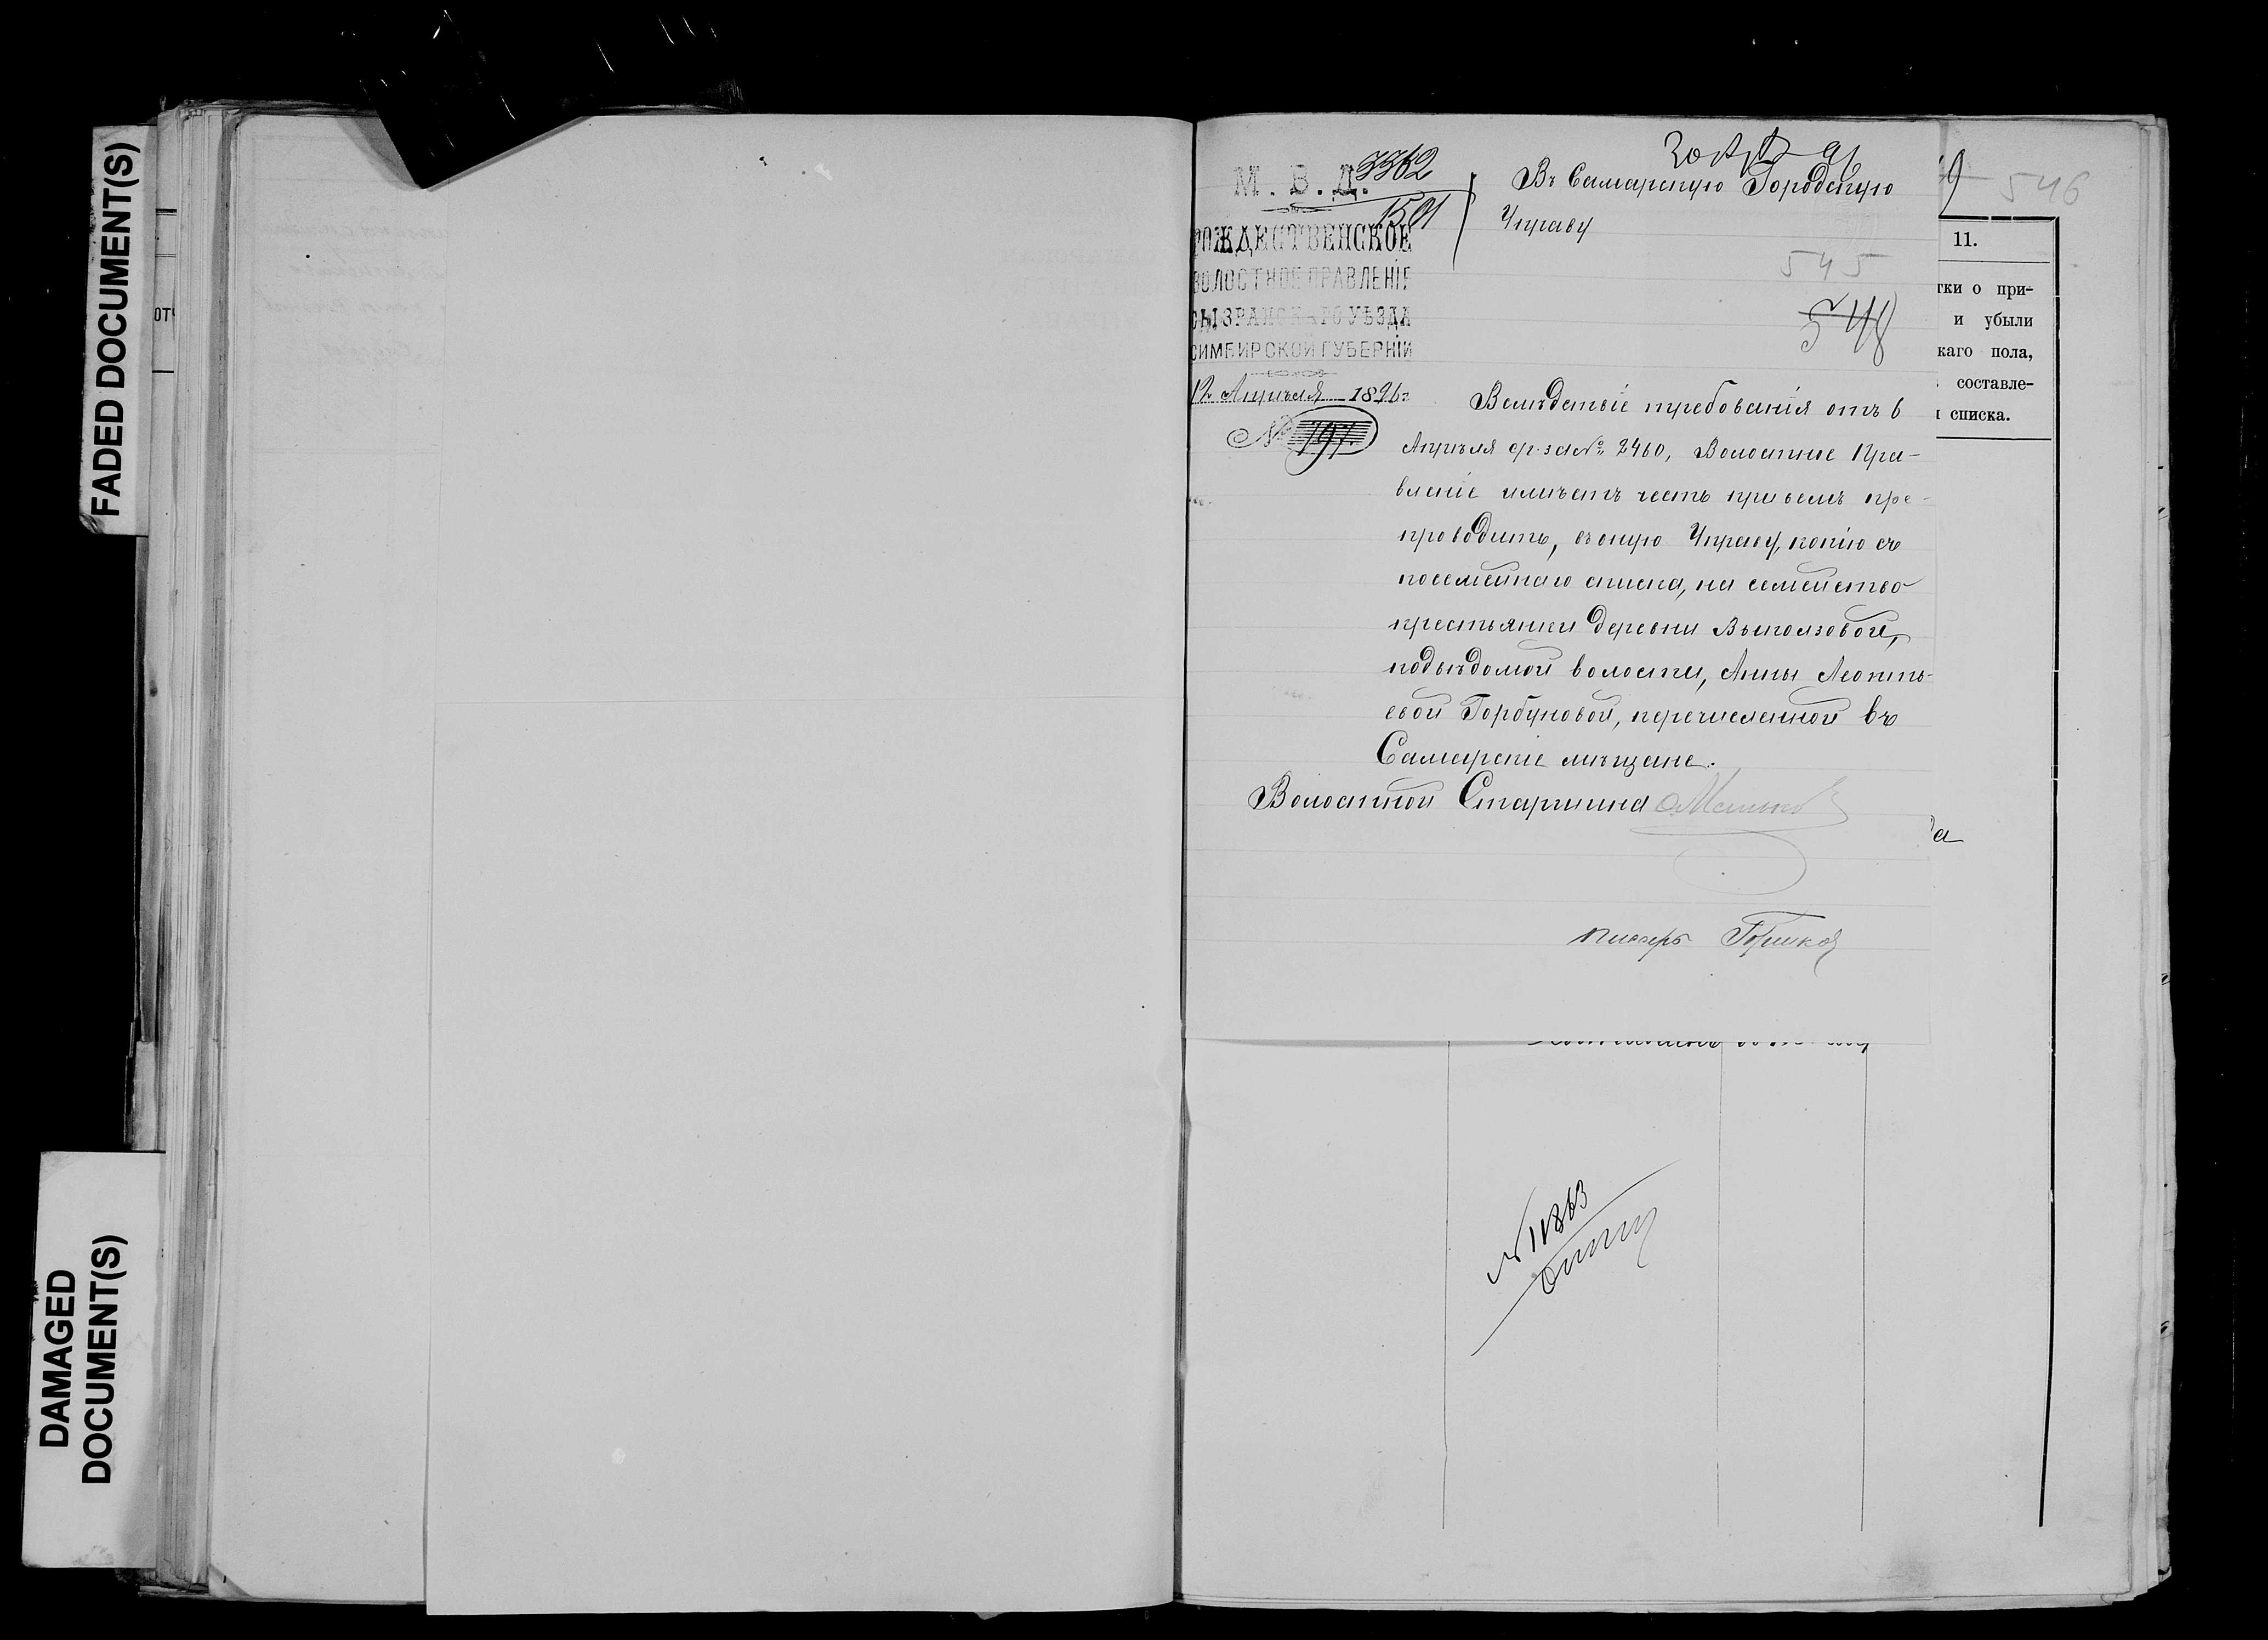 FADED DOCUMENT(S)
DAMAGED
DOCUMENT(S)
М. В. Д.
3362
1501
РОЖДЕСТВЕНСКОЕ
ВОЛОСТНОЕ ПРАВЛЕНІЕ
СЫЗРАНСКАГО УѢЗДА
СИМБИРСКОЙ ГУБЕРНІИ
12 Апрѣля 1896 г.
№ 797.
Въ Самарскую Городскую
Управу
545
548
Вслѣдствіе требованія отъ 6
Апрѣля с/г. за № 2460, Волостное Пра-
вленіе имѣетъ честь при семъ пре-
проводить, въ оную Управу, копію съ
посемейнаго списка, на семейство
крестьянки деревни Выползовой,
подвѣдомой волости, Анны Леонть-
евой Горбуновой, перечисленной въ
Самарскіе мѣщане.
Волостной Старшина
писарь
546
11.
тки о при-
и убыли
каго пола,
составле-
списка.
№ 11863